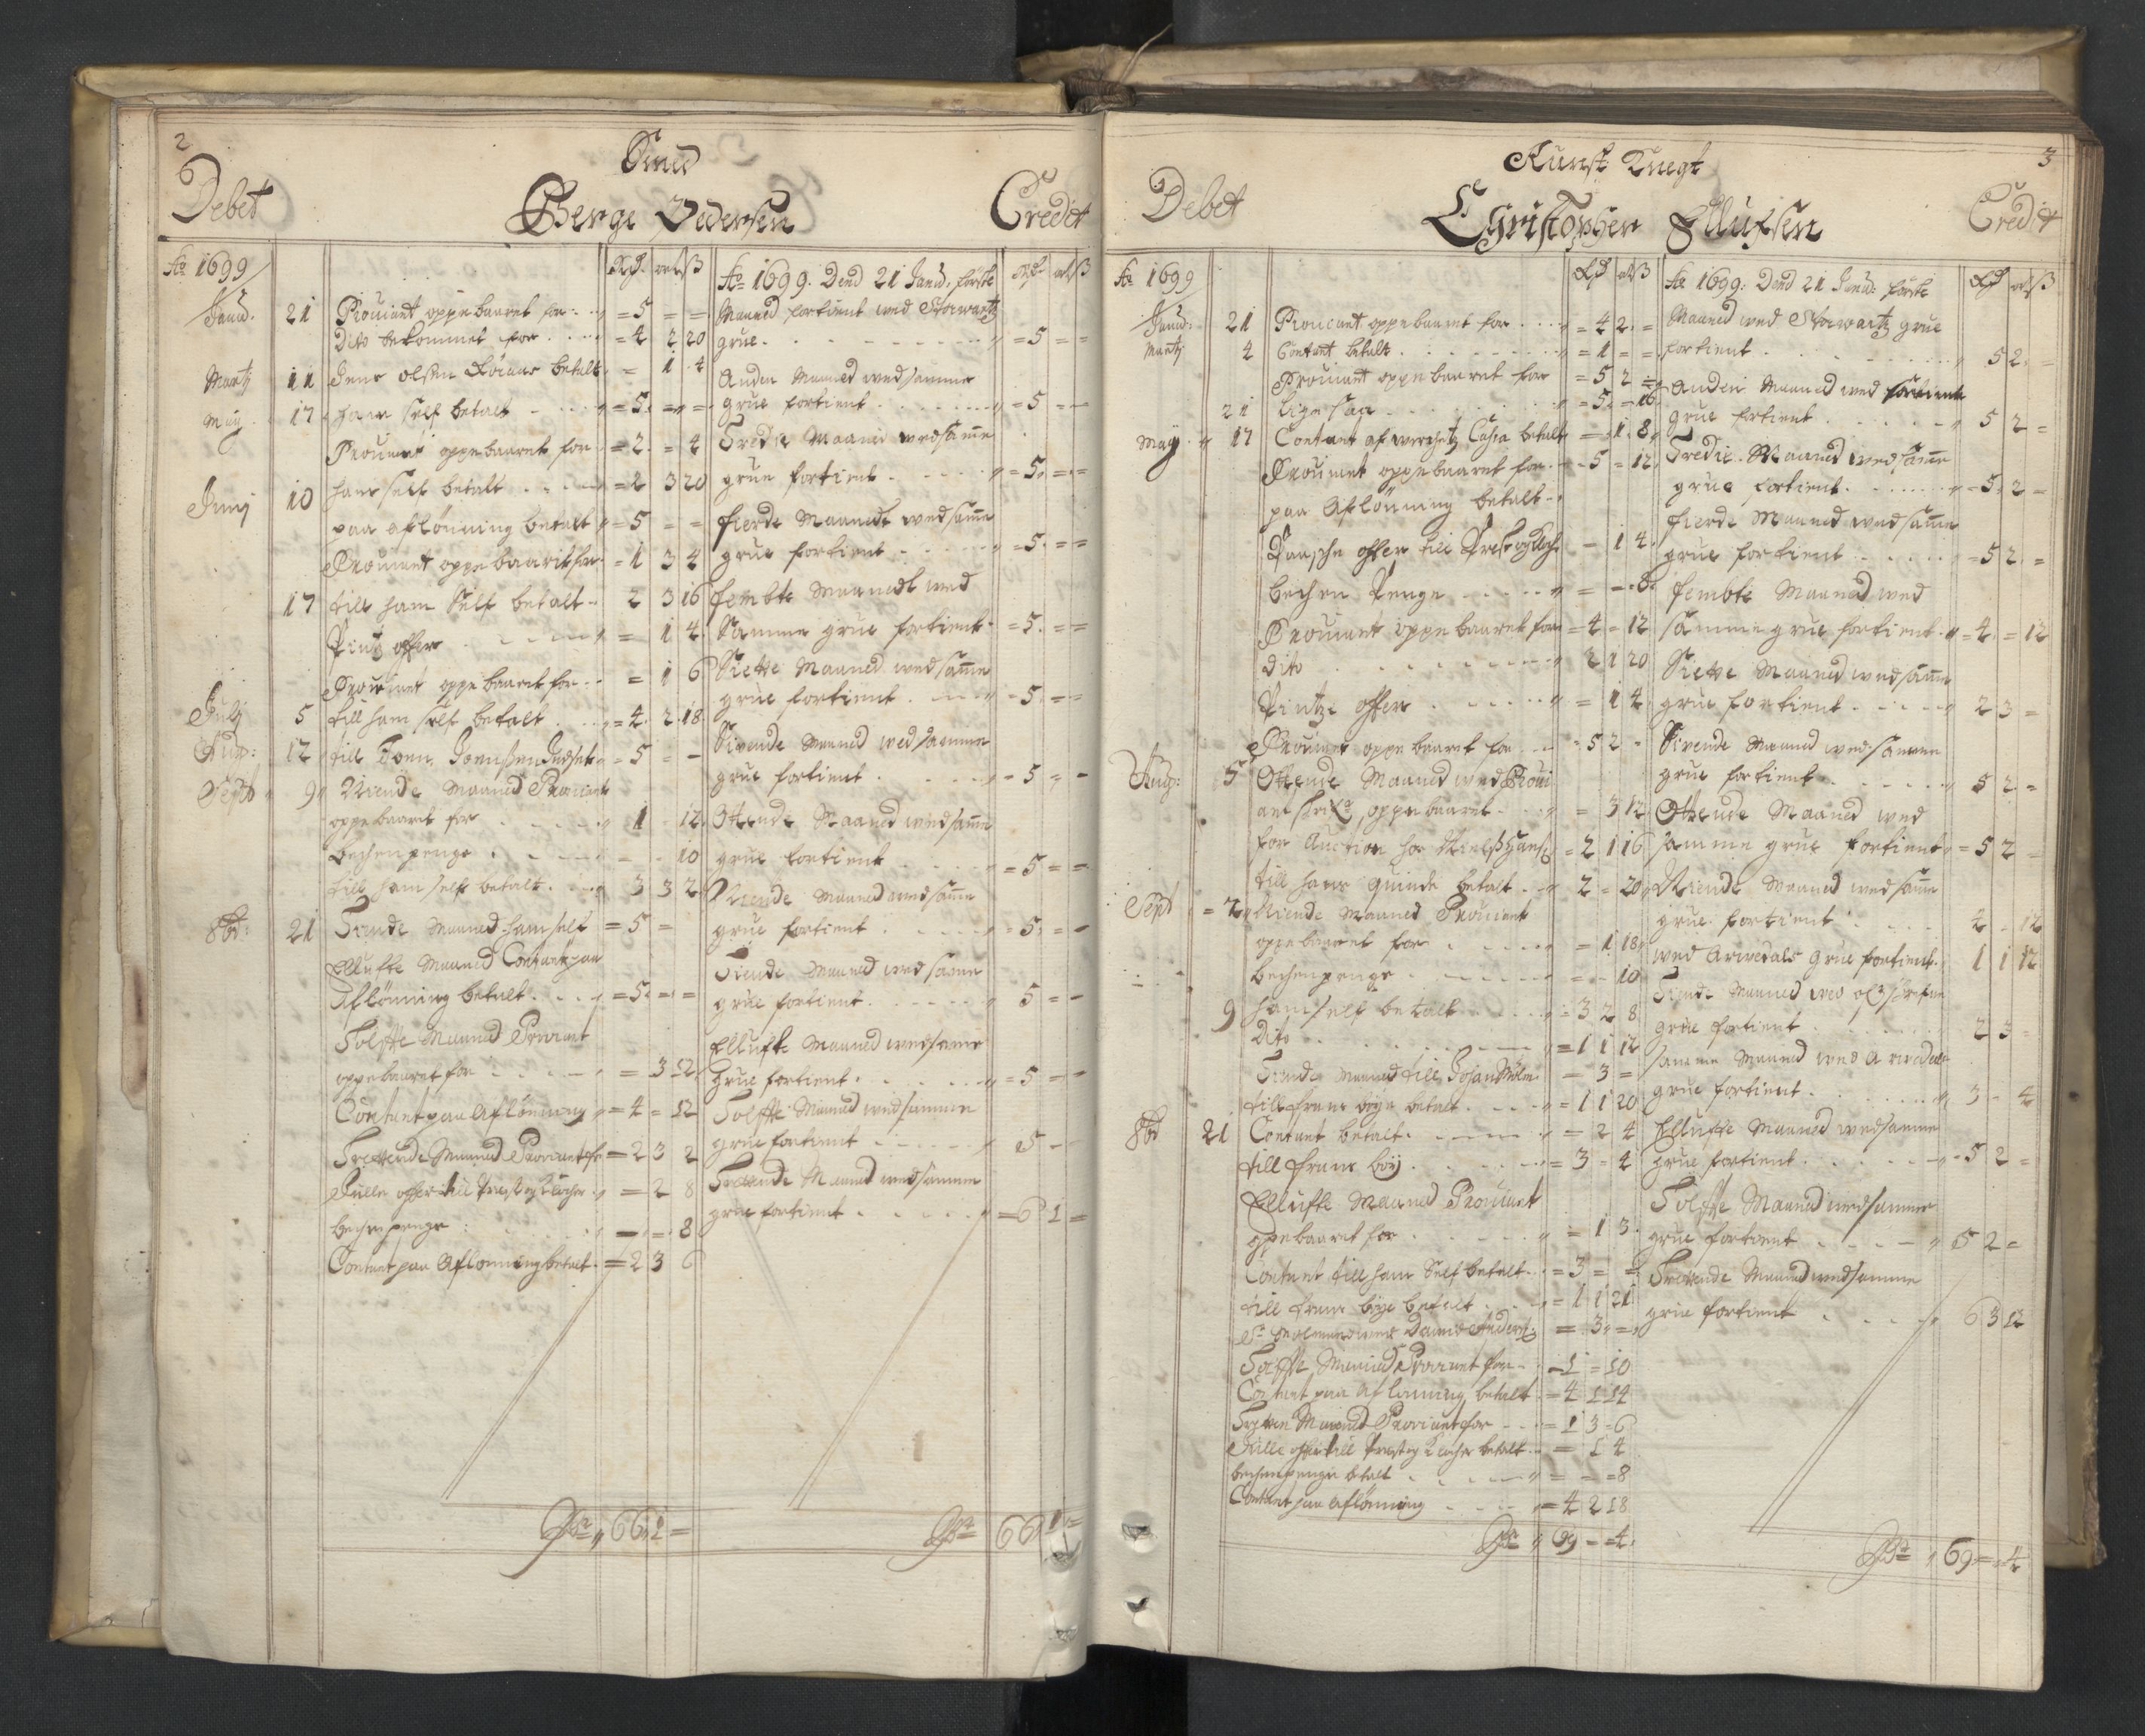 2
Smed
Debet
Børge Pedersen
Credit
Ao 1699
Rd. ort ß
Janu. 21 Prouiant oppebaaret for = 5 = =
Dito bekommet for = 4 2 20
Martj 11 Jens Olsen betalt = 1 4
Maÿ 17 ham self betalt = 5 = =
Prouiant oppebaaret for = 2 = 4
Junj 10 ham self betalt = 2 3 20
paa aflønning betalt = 5 = =
Prouiant oppebaarit for = 1 3 4
17 till ham Self betalt 2 3 16
Pintz offer = 1 4
Prouiant oppebaaret for = 1 6
Julj 5 till ham self betalt = 4 2 18
Aug: 12 till = 5 = =
Sept 9 Niende Maaned Prouiant
oppebaaret for 1 - 12
bechenpenge = - 10
till ham self betalt 3 3 2
8br: 21 Tiende Maaned ham self = 5 =
Elluffte Maaned Contant paa
Aflønning betalt = 5 = =
Tolffte Maaned Prouiant
oppebaaret for = 3 12
Contant paa Aflønning = 4 = 12
Trettende Maaned Prouiant for = 2 3 2
Julle offer till Prest og Klocher = 2 8
bechenpenge = = 8
Contant paa Aflønning betalt = 2 3 6
66 1 =
Ao 1699. Dend 21 Janu. første
Maaned fortient wed Storwartz
grue = 5 = =
Anden Maaned wed samme
grue fortient = 5 = =
Tredie Maaned wed samme
grue fortient = 5 = =
fierde Maanedt wed samme
grue fortient = 5 = =
fembte Maanedt wed
Samme grue fortient = 5 = =
Siette Maaned wed samme
grue fortient = 5 = =
Siwende Maaned wed samme
grue fortient = 5 = =
Ottende Maaned wed samme
grue fortient = 5 = =
Niende Maaned wed samme
grue fortient = 5 = =
Tiende Maaned wed samme
grue fortient 5 = =
Elluffte Maaned wed samme
grue fortient = 5 = =
Tolffte Maaned wed samme
grue fortient 5 =
Trettende Maaned wed samme
grue fortient = 6 1 =
66 1 =
3
Kunst Knegt
Debet
Christopher Ellufsen
Credit
Ao 1699
Rd ort ß
Janu: 21 Prouiant oppebaaret for = 4 2 =
Martj 4 Contant betalt = 1 = =
Prouiant oppebaaret for = 5 2 =
21 lige saa = 5 = 16
Maÿ 17 Contant af Cassa betalt = 1 8
Prouiant oppebaaret for = 5 = 12
paa Aflønning betalt
Paasche offer till Prest og Kloch: = 1 4
bechen Penge = = 8
Prouiant oppebaaret for = 4 = 12
dito 2 1 20
Pintze offer = 1 4
Prouiant oppebaaret for = 5 2 =
Aug: 5 Ottende Maaned wed Proui
oppebaaret = 3 12
for Auction hos = 2 1 16
till hans quinde betalt 2 = 20
Sept = 2 Niende Maaned Prouiant
oppebaaret for = 1 18
bechenpenge = - 10
9 ham self betalt = 3 2 8
Dito = 1 1 12
Tiende Maaned till Johan = 3 =
till frans böÿe betalt = 1 1 20
8br 21 Contant betalt = 2 4
till frans böÿ = 3 = 4
Elluffte Maaned Prouiant
oppebaaret for = 1 3
Contant till ham Self betalt = 3 = =
till frans böÿe betalt = 1 1 21
= 3 = =
Tolffte Maaned Prouiant for = 1 = 10
Contant paa aflønning betalt = 4 1 14
Maaned Prouiant for = 1 3 6
Julle offer till Prest og Klocher betalt = 1 4
bechenpenge betalt = = 8
Contant paa aflønning = 4 2 18
69 = 4
Ao 1699: Dend 21 Janu: første
Maaned wed Storwartz grue
fortient 5 2 =
Anden Maaned wed
grue fortient 5 2 =
Tredie Maaned wed samme
grue fortient = 5 2 =
fierde Maaned wed samme
grue fortient = 5 2 =
fembte Maaned wed
samme grue fortient = 4 = 12
Siette Maaned wed samme
grue fortient 2 3 =
Siwende Maaned wed samme
grue fortient 5 2 =
Ottende Maaned wed
samme grue fortient = 5 2 =
Niende Maaned wed samme
grue fortient 4 = 12
wed Arwedals grue fortient 1 1 12
Tiende Maaned wed
grue fortient 2 3 =
samme Maaned wed Arwedals
grue fortient 3 = 4
Elluffte Maaned wed samme
grue fortient = 5 2 =
Tolffte Maaned wed samme
grue fortient 5 2 =
Trettende Maaned wed samme
grue fortient 6 3 12
69 = 4